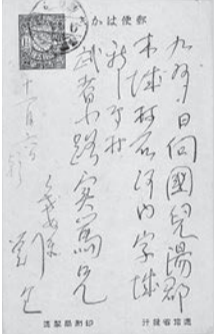 郵便はかき
九州日向國兒湯郡
木城村石河内字城
新しき村
武者小路実篤兄
十一月六日
劉生
遞信省發行
印刷局製造